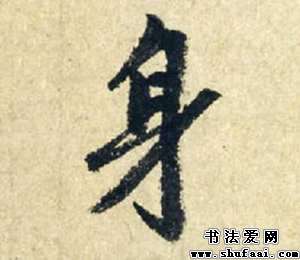 身
书法爱网
www.shufaai.com